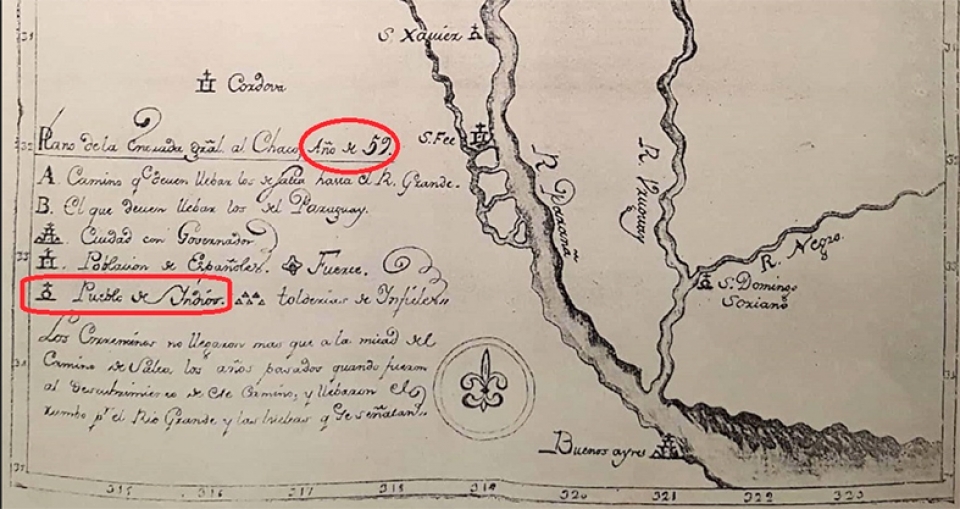 31
S. Xavier
31
Cordova
32
Plano de la Entrada gräl al Chaco, Año de 59.
S. Fee
R. Paranâ
R. Vruguay
A. Camino q.e deven llebar los de Salta hasta el R. Grande.
B. El que deven llebar los del Paraguay.
Ciudad con Governador
R. Negro.
33
Poblacion de Españoles. Fuerte.
S. Domingo
Soriano
Pueblo de Yndios. tolderias de Infieles
Los Correntinos no llegaron mas que a la mitad del
34
Camino de Salta, los años pasados quando fueron
al descubrimiento de este Camino, y llebaron el
rumbo p.r el Rio Grande y las q.e se señalan
Buenos ayres
35
315 316 317 318 319 320 321 322 323